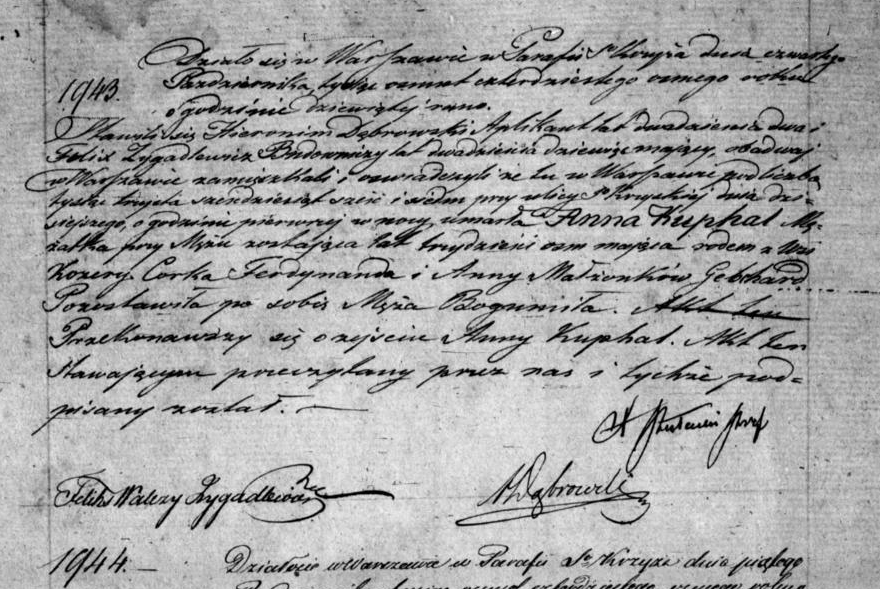 Działo się w Warszawie w Parafii Sº Krzyża dnia czwartego
1943. Października, tysiąc osmset czterdziestego osmego roku
o godzinie dziewiątej rano.
Stawili się Hieronim Dąbrowski Aplikant lat dwadzieścia dwa i
Felix Zygadlewicz Budowniczy lat dwadzieścia dziewięć mający, obadwaj
w Warszawie zamieszkali i oświadczyli że tu w Warszawie pod liczbą
tysiąc trzysta szesdziesiąt sześć i siedm przy ulicy Sº Krzyskiej dnia dzi-
siejszego, o godzinie pierwszej w nocy, umarła Anna Kuphal Mę-
żatka przy Mężu zostająca lat trzydzieści osm mająca rodem z Wsi
Kozery Corka Ferdynanda i Anny Małżonków Gebchard
Pozostawiła po sobie Męża Bogumiła. Akt ten
Przekonawszy się o zejściu Anny Kuphal. Akt ten
Stawającym przeczytany przez nas i tychże pod-
pisany został.
Feliks Walezy Zygadlewicz
H Dąbrowski
1944. Działosię w Warszawie w Parafii Sº Krzyża dnia piątego